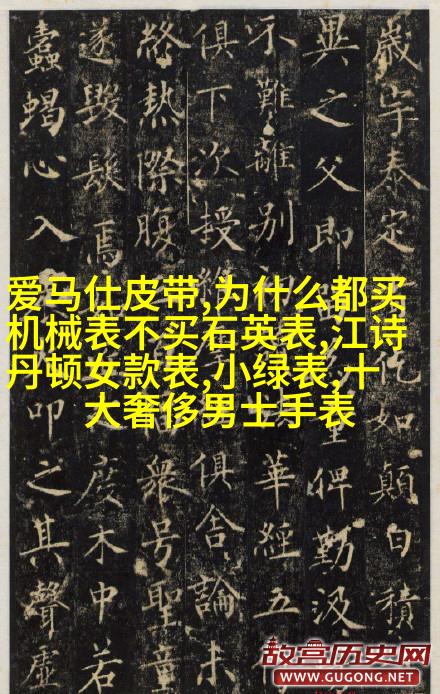 歲宇泰定
仡如顛白積
異之父即
俾勤汲
不難離別
華經五
俱下次授
俱舍論未
終熱際腹
衆号聖童
遂毀髮焉
度木中若
蠹蝎心入
卬之其聲虛
爱马仕皮带,为什么都买
机械表不买石英表,江诗
丹顿女款表,小绿表,十
大奢侈男士手表
故宫历史网
WWW.GUGONG.NET